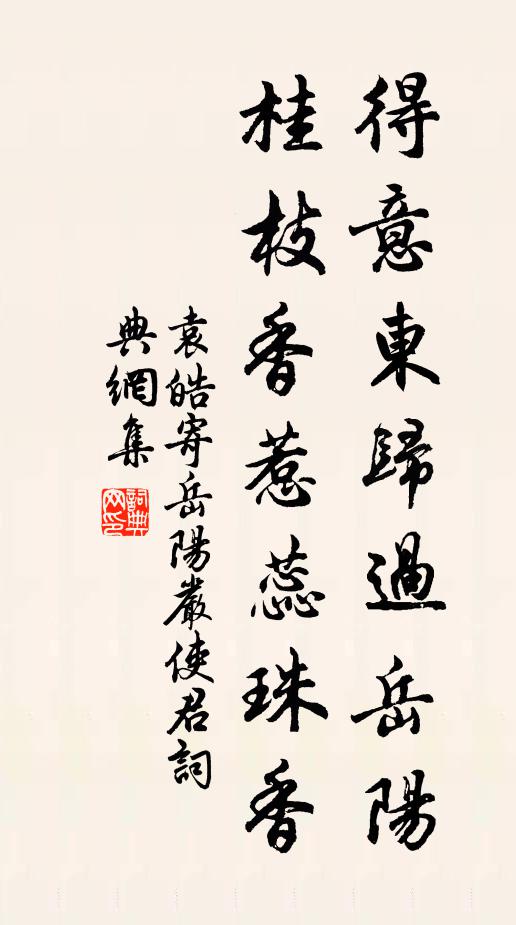 得意東歸過岳陽
桂枝香惹蕊珠香
袁皓寄岳陽嚴使君詞
典網集
詞典
网印